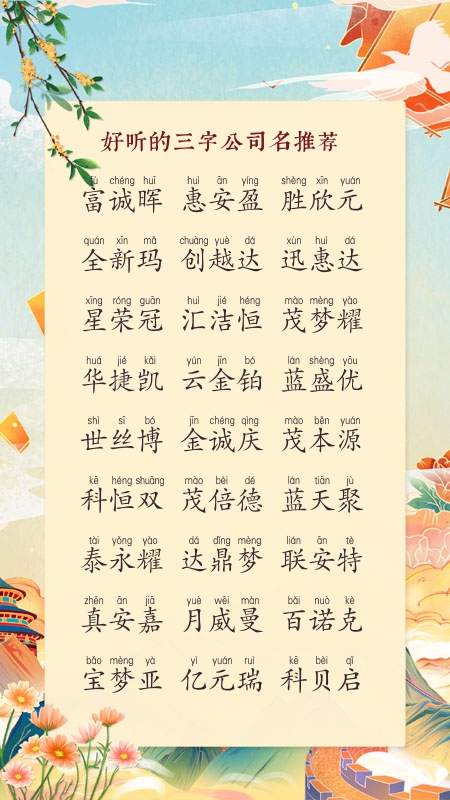 好听的三字公司名推荐
fù chéng huī huì ān yíng shèng xīn yuán
富诚晖 惠安盈 胜欣元
quán xīn mǎ chuàng yuè dá xùn huì dá
全新玛 创越达 迅惠达
xīng róng guān huì jié héng mào mèng yào
星荣冠 汇洁恒 茂梦耀
huá jié kǎi yún jīn bó lán shèng yōu
华捷凯 云金铂 蓝盛优
shì sī bó jīn chéng qìng mào běn yuán
世丝博 金诚庆 茂本源
kē héng shuāng mào bèi dé lán tiān jù
科恒双 茂倍德 蓝天聚
tài yǒng yào dá dǐng mèng lián ān tè
泰永耀 达鼎梦 联安特
zhēn ān jiā yuè wēi màn bǎi nuò kè
真安嘉 月威曼 百诺克
bǎo mèng yà yì yuán ruì kē bèi qǐ
宝梦亚 亿元瑞 科贝启